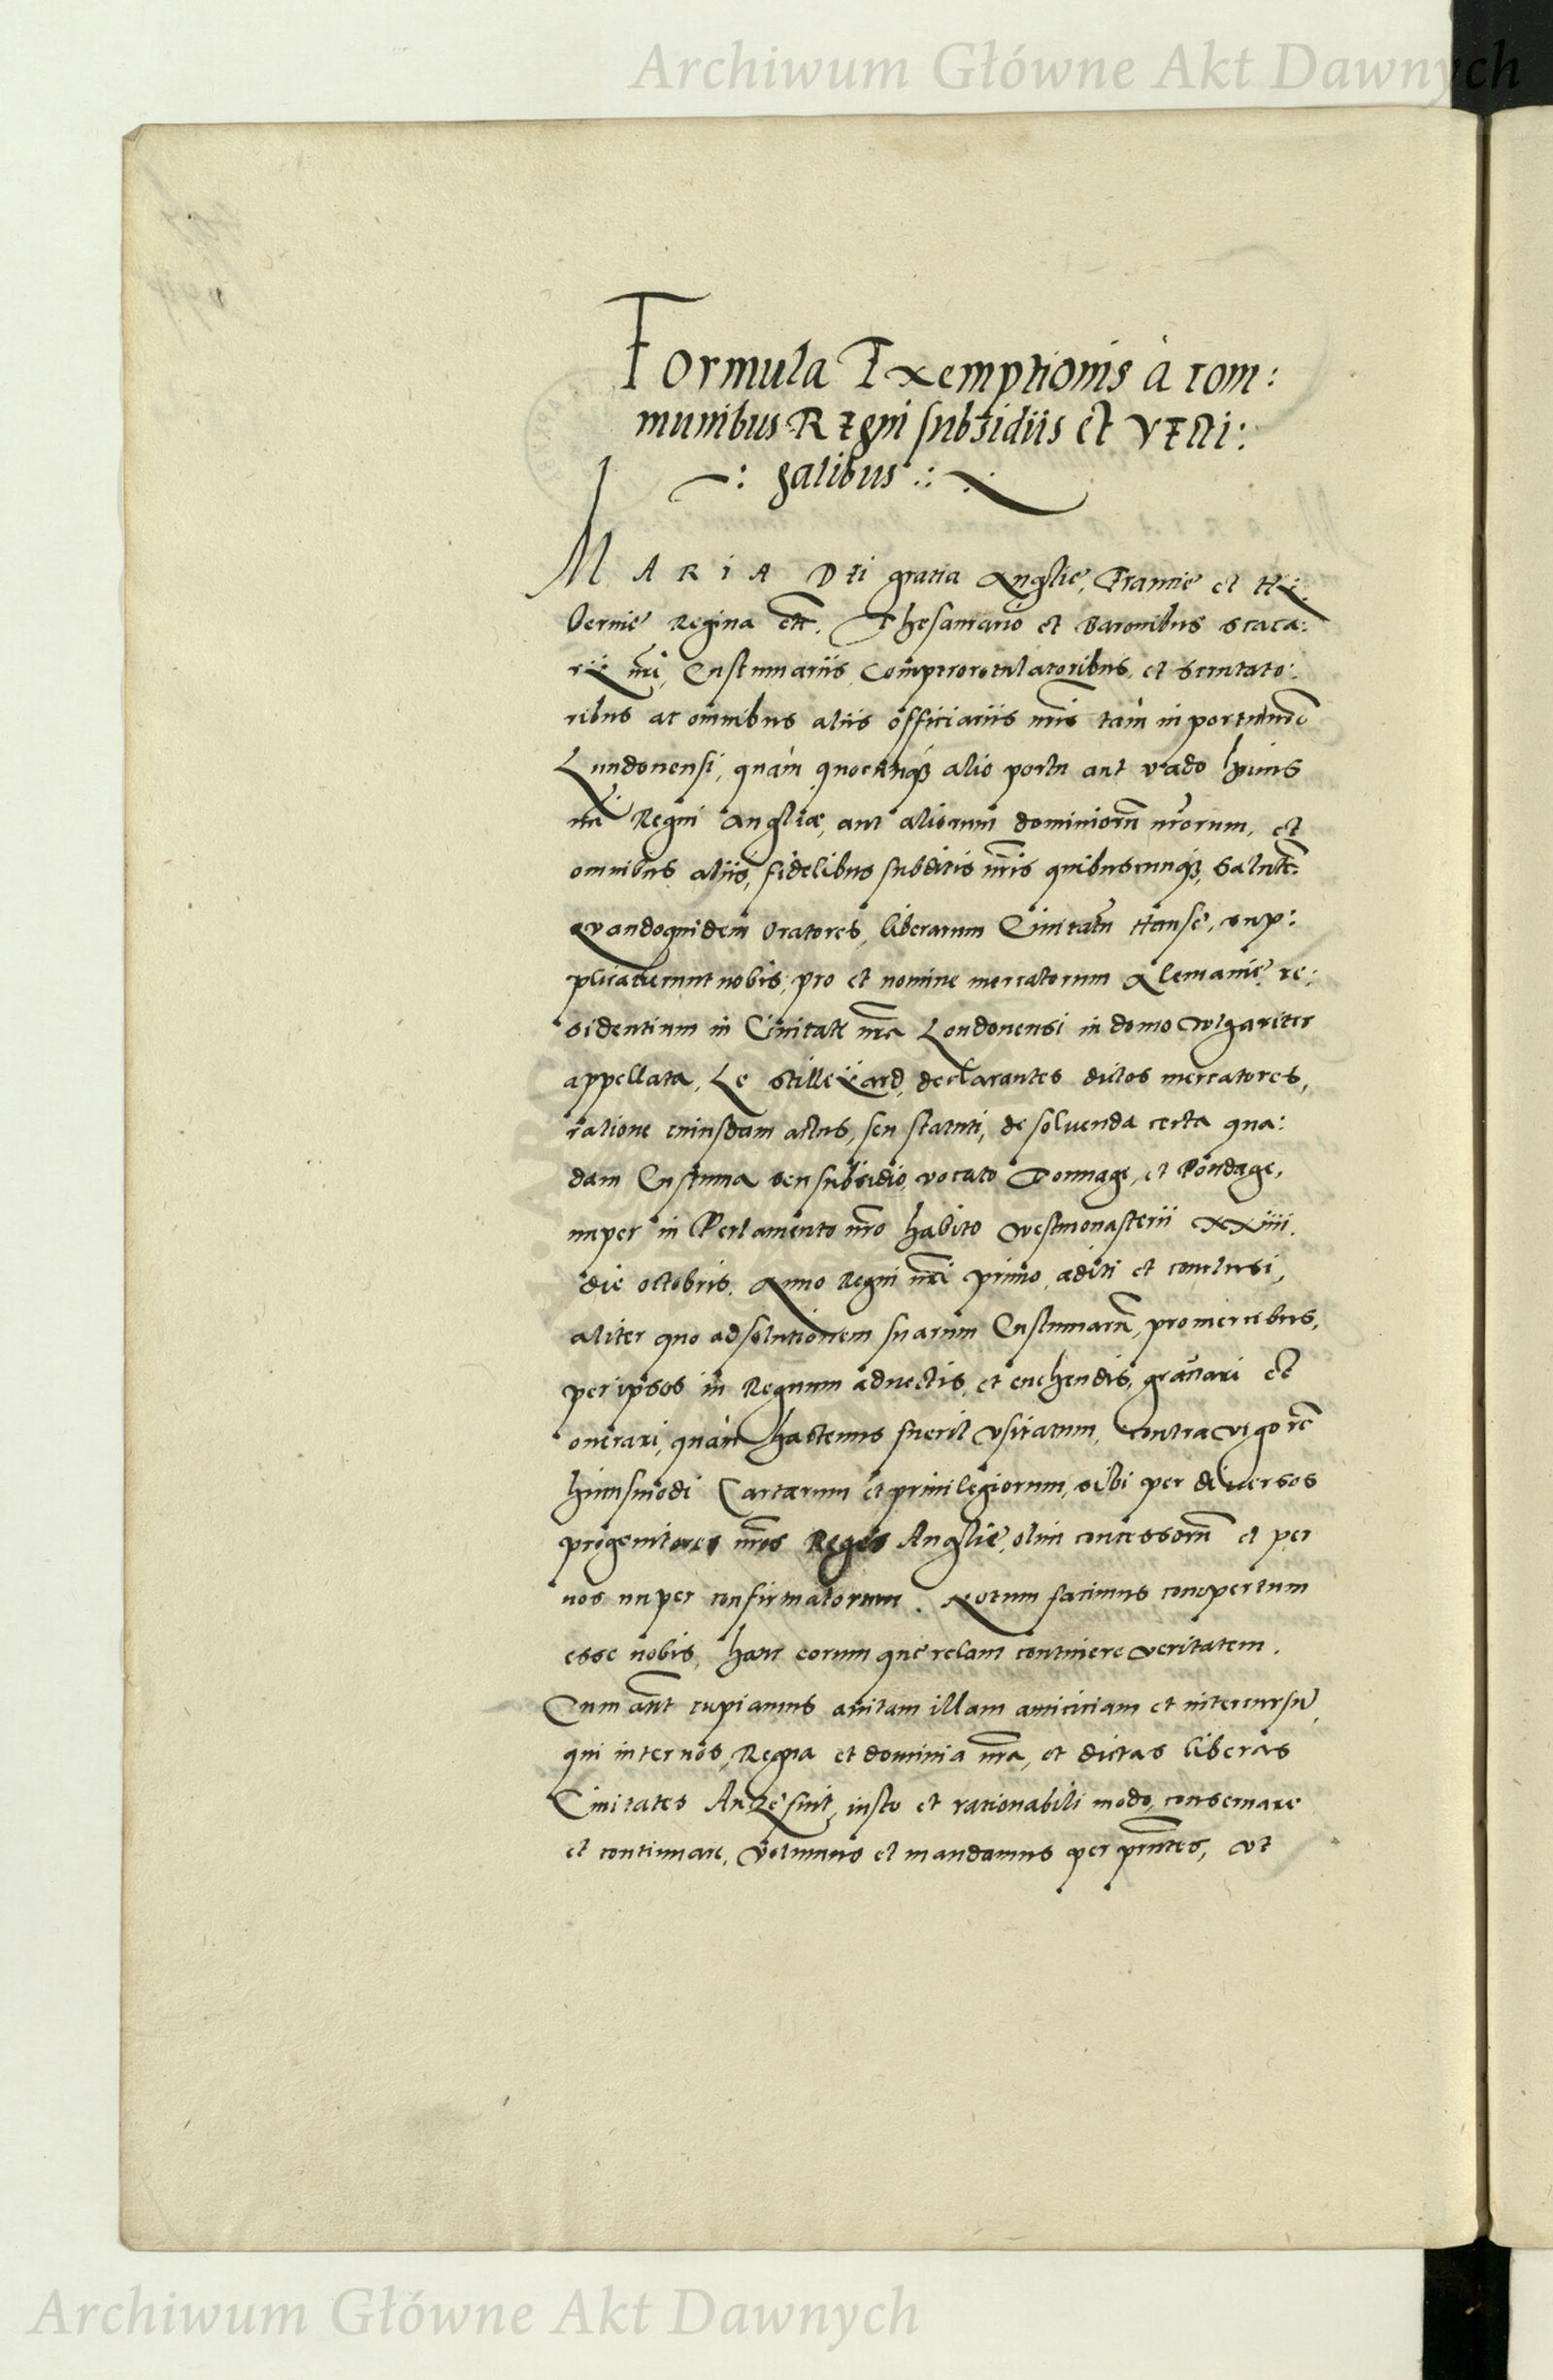 Archiwum Główne Akt Dawnych
Formula Exemptionis à com:
munibus Regni subsidiis et vecti:
galibus
MARIA Dei gratia Anglie, Francie et Hy:
bernie Regina etc. Thesaurario et Baronibus scaca:
rii nri, Custumariis, Compterorotulatoribus, et scrutato:
ribus ac omnibus aliis officiariis nris tam in portu nro
Lundonensi, quàm quocunq alio portu aut vado huius
nri Regni Angliæ, aut aliorum dominioru nrorum, et
omnibus aliis, fidelibus subditis nris quibuscunq, Salute
quandoquidem Oratores, liberarum Civitatu Hanse, sup:
plicaverunt nobis, pro et nomine mercatorum Alemanie re:
sidentium in Civitate nra Londonensi in domo vulgariter
appellata, Le Stilleyard, declarantes dictos mercatores,
ratione cuiusdam actus, seu statuti, de solvenda certa qua:
dam Custuma seu subsidio, vocato Tonnage, et Pondage,
nuper in Perlamento nro habito Westmonasterii xxiiii.
die octobris. Anno Regni nri primo, æditi et conclusi,
aliter quo ad solutionem suarum Custumaru, pro mercibus,
per ipsos in Regnum advectis, et evehendis, gravari et
onerari, quàm hactenus fuerit usitatum, contra vigore
huiusmodi Cartarum et privilegiorum, sibi per diversos
progenitores nros Reges Anglie, olim concessoru et per
nos nuper confirmatorum. Notum facimus compertum
esse nobis, hanc eorum querelam continere veritatem.
Cum aut cupiamus avitam illam amiciciam et intercursu,
qui inter nos, Regna et dominia nra, et dictas liberas
Civitates Anze sint, iusto et rationabili modo, conservare
et continuare, volumus et mandamus per pntes, ut
Archiwum Główne Akt Dawnych